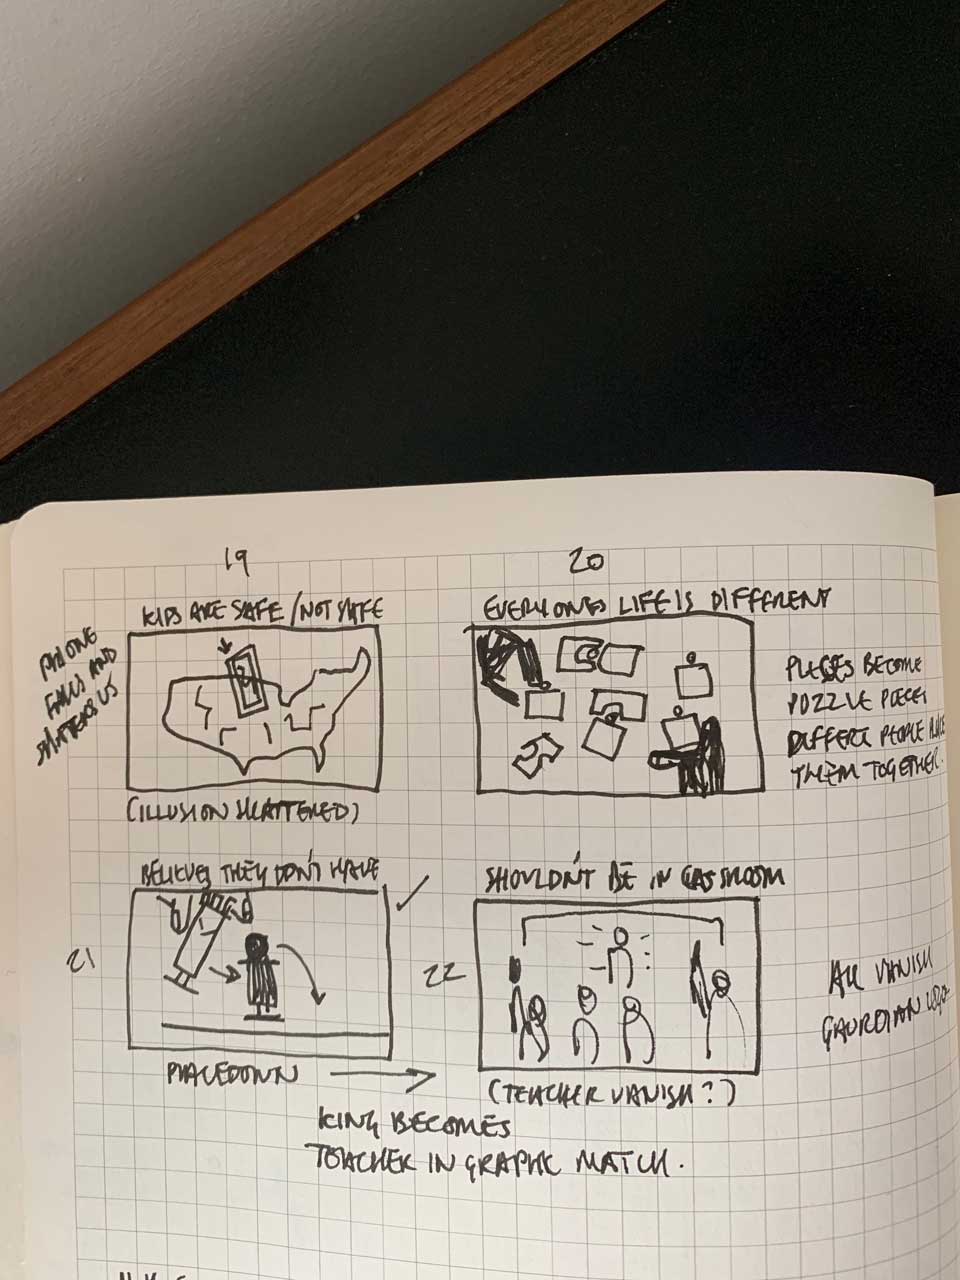 19
KIDS ARE SAFE / NOT SAFE
PHONE
FALLS AND
SHATTERS US
(ILLUSION SHATTERED)
20
EVERYONES LIFE IS DIFFERENT
PIECES BECOME
PUZZLE PIECES
PEOPLE
THEM TOGETHER.
21
BELIEVES THEY DON'T HAVE
PLACEDOWN
KING BECOMES
TEACHER IN GRAPHIC MATCH.
22
SHOULDN'T BE IN CLASSROOM
(TEACHER VANISH?)
ALL VANISH
GAURDIAN LOGO